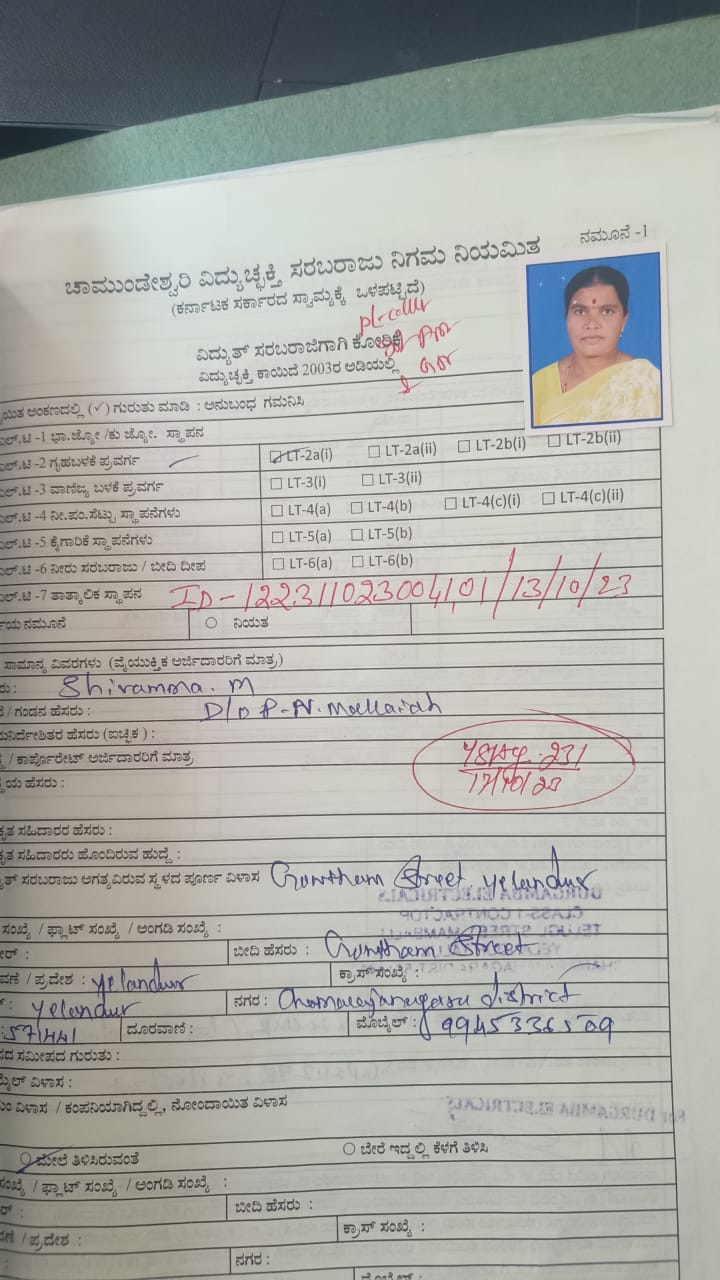 ನಮೂನೆ -1
ಚಾಮುಂಡೇಶ್ವರಿ ವಿದ್ಯುಚ್ಛಕ್ತಿ ಸರಬರಾಜು ನಿಗಮ ನಿಯಮಿತ
(ಕರ್ನಾಟಕ ಸರ್ಕಾರದ ಸ್ವಾಮ್ಯಕ್ಕೆ ಒಳಪಟ್ಟಿದೆ)
ವಿದ್ಯುತ್ ಸರಬರಾಜಿಗಾಗಿ ಕೋರಿಕೆ
ವಿದ್ಯುಚ್ಛಕ್ತಿ ಕಾಯಿದೆ 2003ರ ಅಡಿಯಲ್ಲಿ
ಅಂಕಣದಲ್ಲಿ (✓) ಗುರುತು ಮಾಡಿ : ಅನುಬಂಧ ಗಮನಿಸಿ
ಎಲ್.ಟಿ -1 ಭಾ.ಜ್ಯೋ /ಕು ಜ್ಯೋ. ಸ್ಥಾಪನ
ಎಲ್.ಟಿ -2 ಗೃಹಬಳಕೆ ಪ್ರವರ್ಗ ☑ LT-2a(i) ☐ LT-2a(ii) ☐ LT-2b(i) ☐ LT-2b(ii)
ಎಲ್.ಟಿ -3 ವಾಣಿಜ್ಯ ಬಳಕೆ ಪ್ರವರ್ಗ ☐ LT-3(i) ☐ LT-3(ii)
ಎಲ್.ಟಿ -4 ನೀ.ಪಂ.ಸೆಟ್ಟು ಸ್ಥಾಪನೆಗಳು ☐ LT-4(a) ☐ LT-4(b) ☐ LT-4(c)(i) ☐ LT-4(c)(ii)
ಎಲ್.ಟಿ -5 ಕೈಗಾರಿಕೆ ಸ್ಥಾಪನೆಗಳು ☐ LT-5(a) ☐ LT-5(b)
ಎಲ್.ಟಿ -6 ನೀರು ಸರಬರಾಜು / ಬೀದಿ ದೀಪ ☐ LT-6(a) ☐ LT-6(b)
ಎಲ್.ಟಿ -7 ತಾತ್ಕಾಲಿಕ ಸ್ಥಾಪನ ID-12231102300401,01/13/10/23
ನಮೂನೆ ○ ನಿಯತ
ಸಾಮಾನ್ಯ ವಿವರಗಳು (ವೈಯುಕ್ತಿಕ ಅರ್ಜಿದಾರರಿಗೆ ಮಾತ್ರ)
Shivamma. M
/ ಗಂಡನ ಹೆಸರು : D/o P-N. Mallaiah
ಹೆಸರು (ಐಚ್ಛಿಕ) :
/ ಕಾರ್ಪೊರೇಟ್ ಅರ್ಜಿದಾರರಿಗೆ ಮಾತ್ರ
ಹೆಸರು :
17/10/23
ಸಹಿದಾರರ ಹೆಸರು :
ಸಹಿದಾರರು ಹೊಂದಿರುವ ಹುದ್ದೆ :
ಸರಬರಾಜು ಅಗತ್ಯವಿರುವ ಸ್ಥಳದ ಪೂರ್ಣ ವಿಳಾಸ Gowtham Street Yelandur
DURGAMBA ELECTRICALS
CLASS-I CONTRACTOR
ಸಂಖ್ಯೆ / ಫ್ಲಾಟ್ ಸಂಖ್ಯೆ / ಅಂಗಡಿ ಸಂಖ್ಯೆ :
ಬೀದಿ ಹೆಸರು : Gowtham Street
/ ಪ್ರದೇಶ : Yelandur ಕ್ರಾಸ್ ಸಂಖ್ಯೆ :
Yelandur ನಗರ : Chamarajanagara district
571441 ದೂರವಾಣಿ : ಮೊಬೈಲ್ : 9945336509
ಸಮೀಪದ ಗುರುತು :
ವಿಳಾಸ :
ವಿಳಾಸ / ಕಂಪನಿಯಾಗಿದ್ದಲ್ಲಿ, ನೋಂದಾಯಿತ ವಿಳಾಸ
For DURGAMBA ELECTRICALS
○ ಮೇಲೆ ತಿಳಿಸಿರುವಂತೆ ○ ಬೇರೆ ಇದ್ದಲ್ಲಿ ಕೆಳಗೆ ತಿಳಿಸಿ
ಸಂಖ್ಯೆ / ಫ್ಲಾಟ್ ಸಂಖ್ಯೆ / ಅಂಗಡಿ ಸಂಖ್ಯೆ :
ಬೀದಿ ಹೆಸರು :
/ ಪ್ರದೇಶ : ಕ್ರಾಸ್ ಸಂಖ್ಯೆ :
ನಗರ :